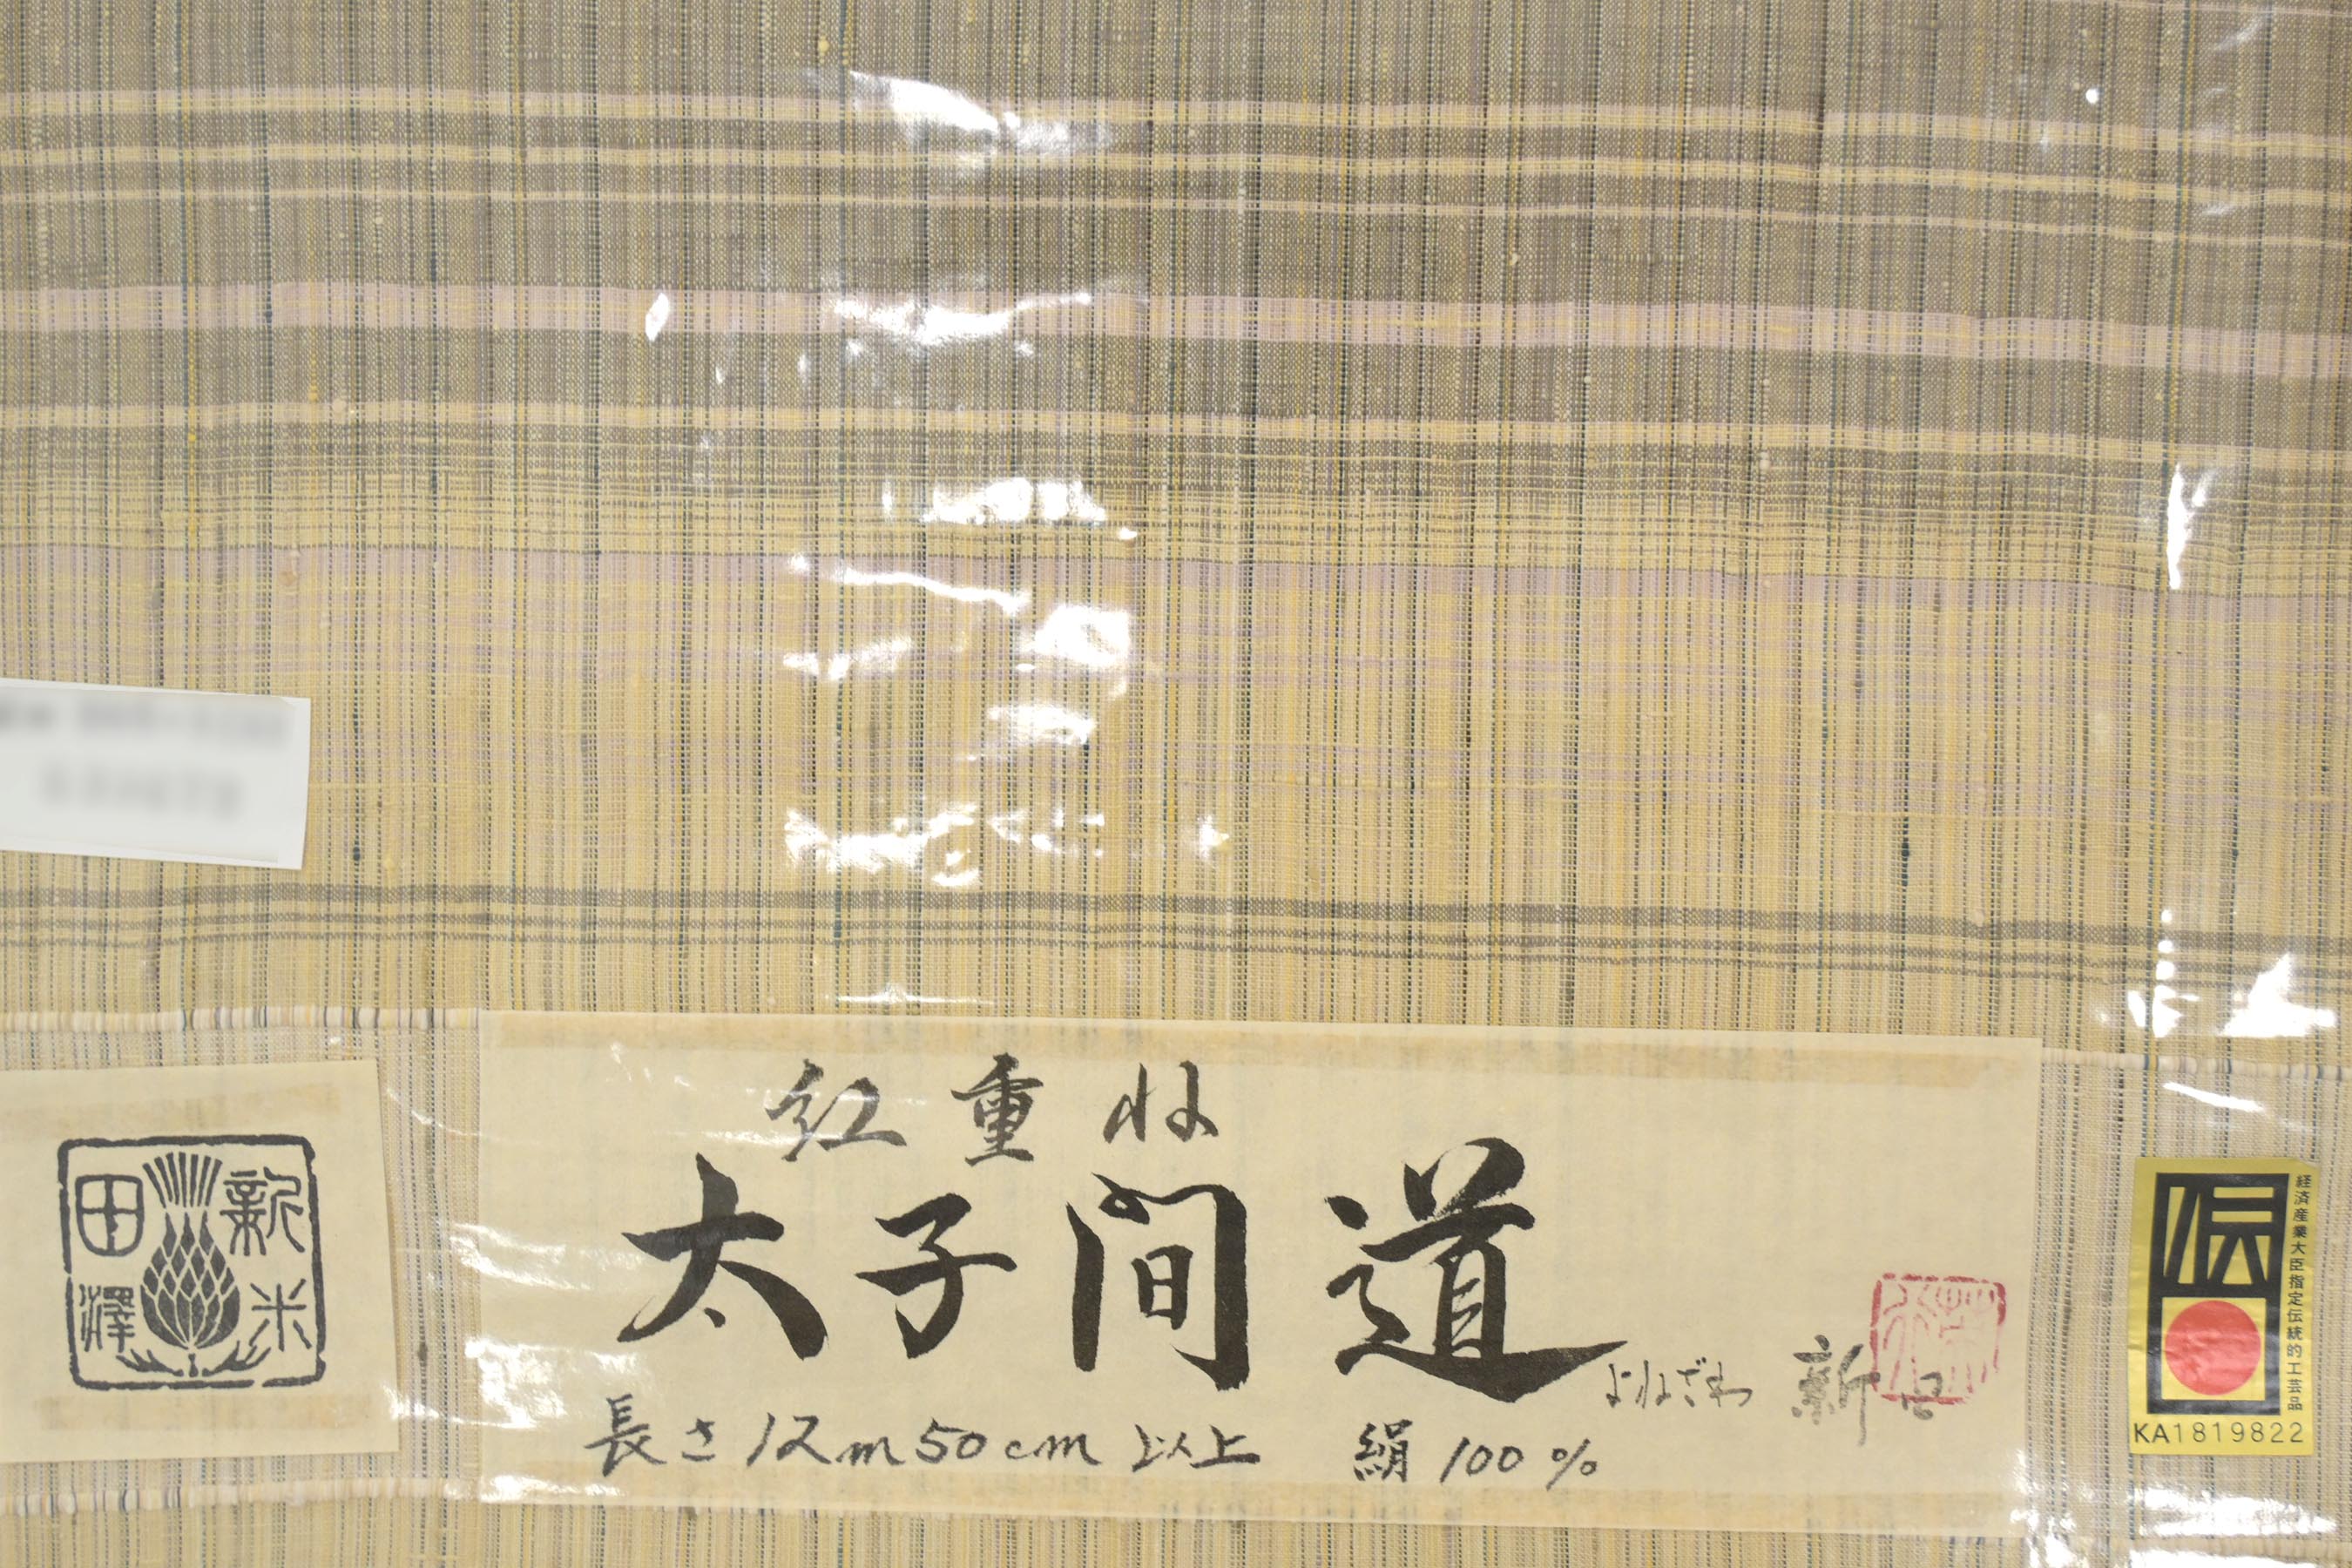 新田
米澤
紅重ね
太子間道
よねざわ 新田
長さ12m50cm以上 絹100%
伝
経済産業大臣指定伝統的工芸品
KA1819822